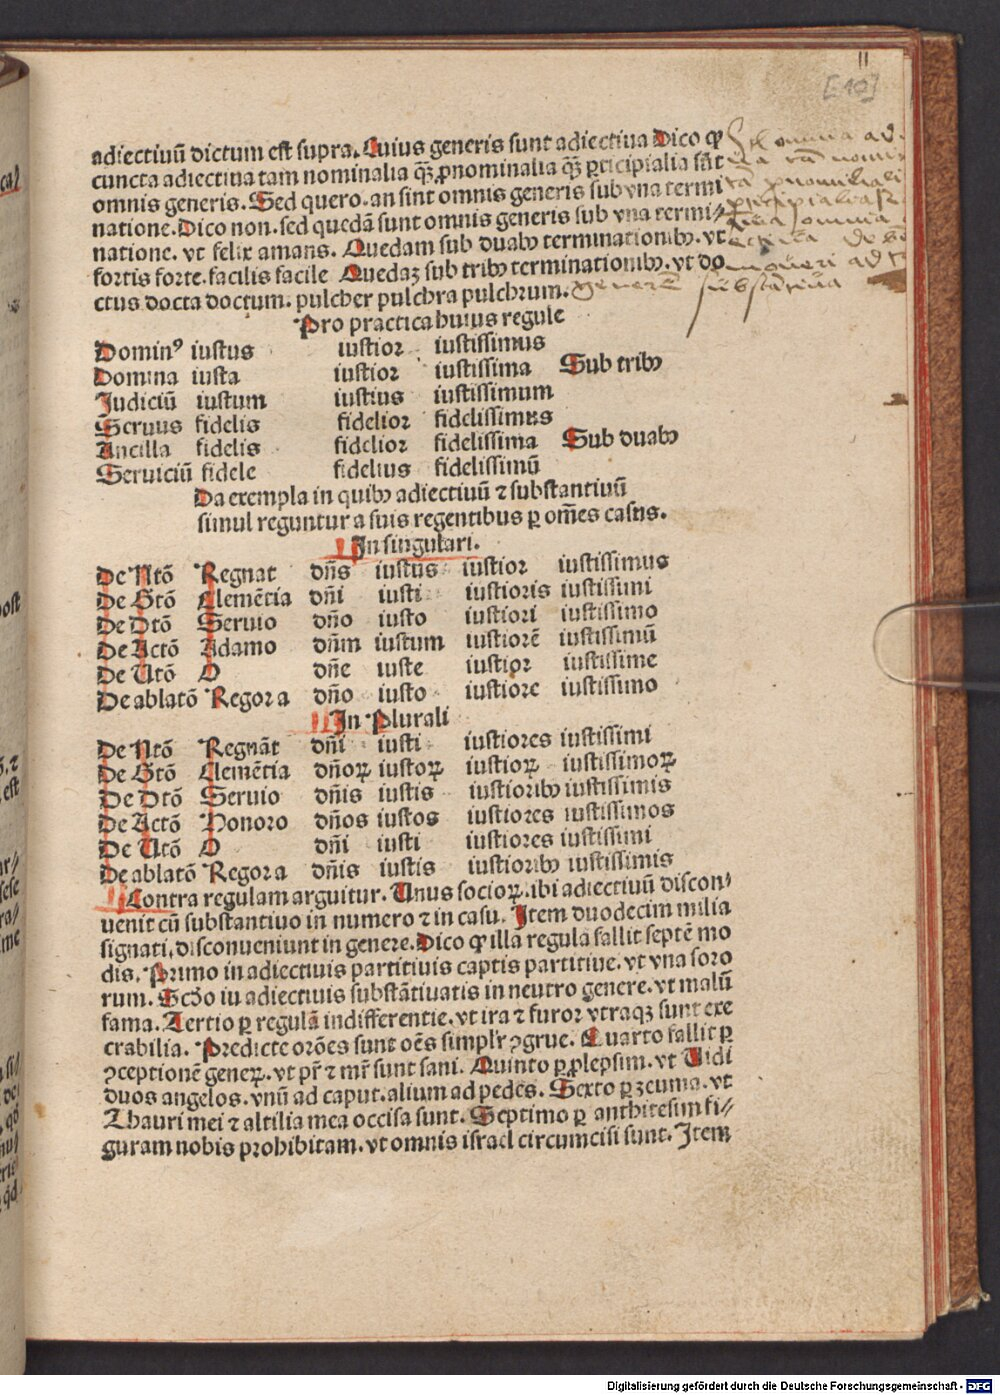 11
[10]
adiectiuū dictum est supra. Cuius generis sunt adiectiua Dico ꝙ
cuncta adiectiua tam nominalia qꝫ̄ ꝓnominalia qꝫ̄ ꝑticipialia sūt
omnis generis. Sed quero. an sint omnis generis sub vna termi
natione. Dico non. sed quedā sunt omnis generis sub vna termi⸗
natione. vt felix amans. Quedam sub duabꝰ terminationibꝰ. vt
fortis forte. facilis facile Quedaꝫ sub tribꝰ terminationibꝰ. vt do
ctus docta doctum. pulcher pulchra pulchrum.
generū substātiua
Pro practica huius regule
Dominꝰ iustus iustior iustissimus
Domina iusta iustior iustissima Sub tribꝰ
Judiciū iustum iustius iustissimum
Seruus fidelis fidelior fidelissimus
Ancilla fidelis fidelior fidelissima Sub duabꝰ
Seruiciū fidele fidelius fidelissimū
Da exempla in quibꝰ adiectiuū ⁊ substantiuū
simul reguntur a suis regentibus ꝑ om̄es casus.
In singulari.
De Ntō Regnat dn̄s iustus iustior iustissimus
De Gtō Clemētia dn̄i iusti iustioris iustissimi
De Dtō Seruio dn̄o iusto iustiori iustissimo
De Actō Adamo dn̄m iustum iustiorē iustissimū
De Utō O dn̄e iuste iustior iustissime
De ablatō Regor a dn̄o iusto iustiore iustissimo
In Plurali
De Ntō Regnāt dn̄i iusti iustiores iustissimi
De Gtō Clemētia dn̄oꝝ iustoꝝ iustioꝝ iustissimoꝝ
De Dtō Seruio dn̄is iustis iustioribꝰ iustissimis
De Actō Honoro dn̄os iustos iustiores iustissimos
De Utō O dn̄i iusti iustiores iustissimi
De ablatō Regor a dn̄is iustis iustioribꝰ iustissimis
Contra regulam arguitur. Unus socioꝝ. ibi adiectiuū discon⸗
uenit cū substantiuo in numero ⁊ in casu. Item duodecim milia
signati, disconueniunt in genere. Dico ꝙ illa regula fallit septē mo
dis. Primo in adiectiuis partitiuis captis partitiue. vt vna soro
rum. Scd̄o iu adiectiuis substātiuatis in neutro genere. vt malū
fama. Tertio ꝑ regulā indifferentie. vt ira ⁊ furor vtraqꝫ sunt exe
crabilia. Predicte orōes sunt oēs simplr̄ ꝯgrue. Quarto fallit ꝑ
ꝯceptionē geneꝝ. vt pr̄ ⁊ mr̄ sunt sani. Quinto ꝑ ꝓlepsim. vt Uidi
duos angelos. vnū ad caput. alium ad pedes. Sexto ꝑ zeuma. vt
Thauri mei ⁊ altilia mea occisa sunt. Septimo ꝑ anthitesim fi⸗
guram nobis prohibitam. vt omnis israel circumcisi sunt. Item
Digitalisierung gefördert durch die Deutsche Forschungsgemeinschaft - DFG